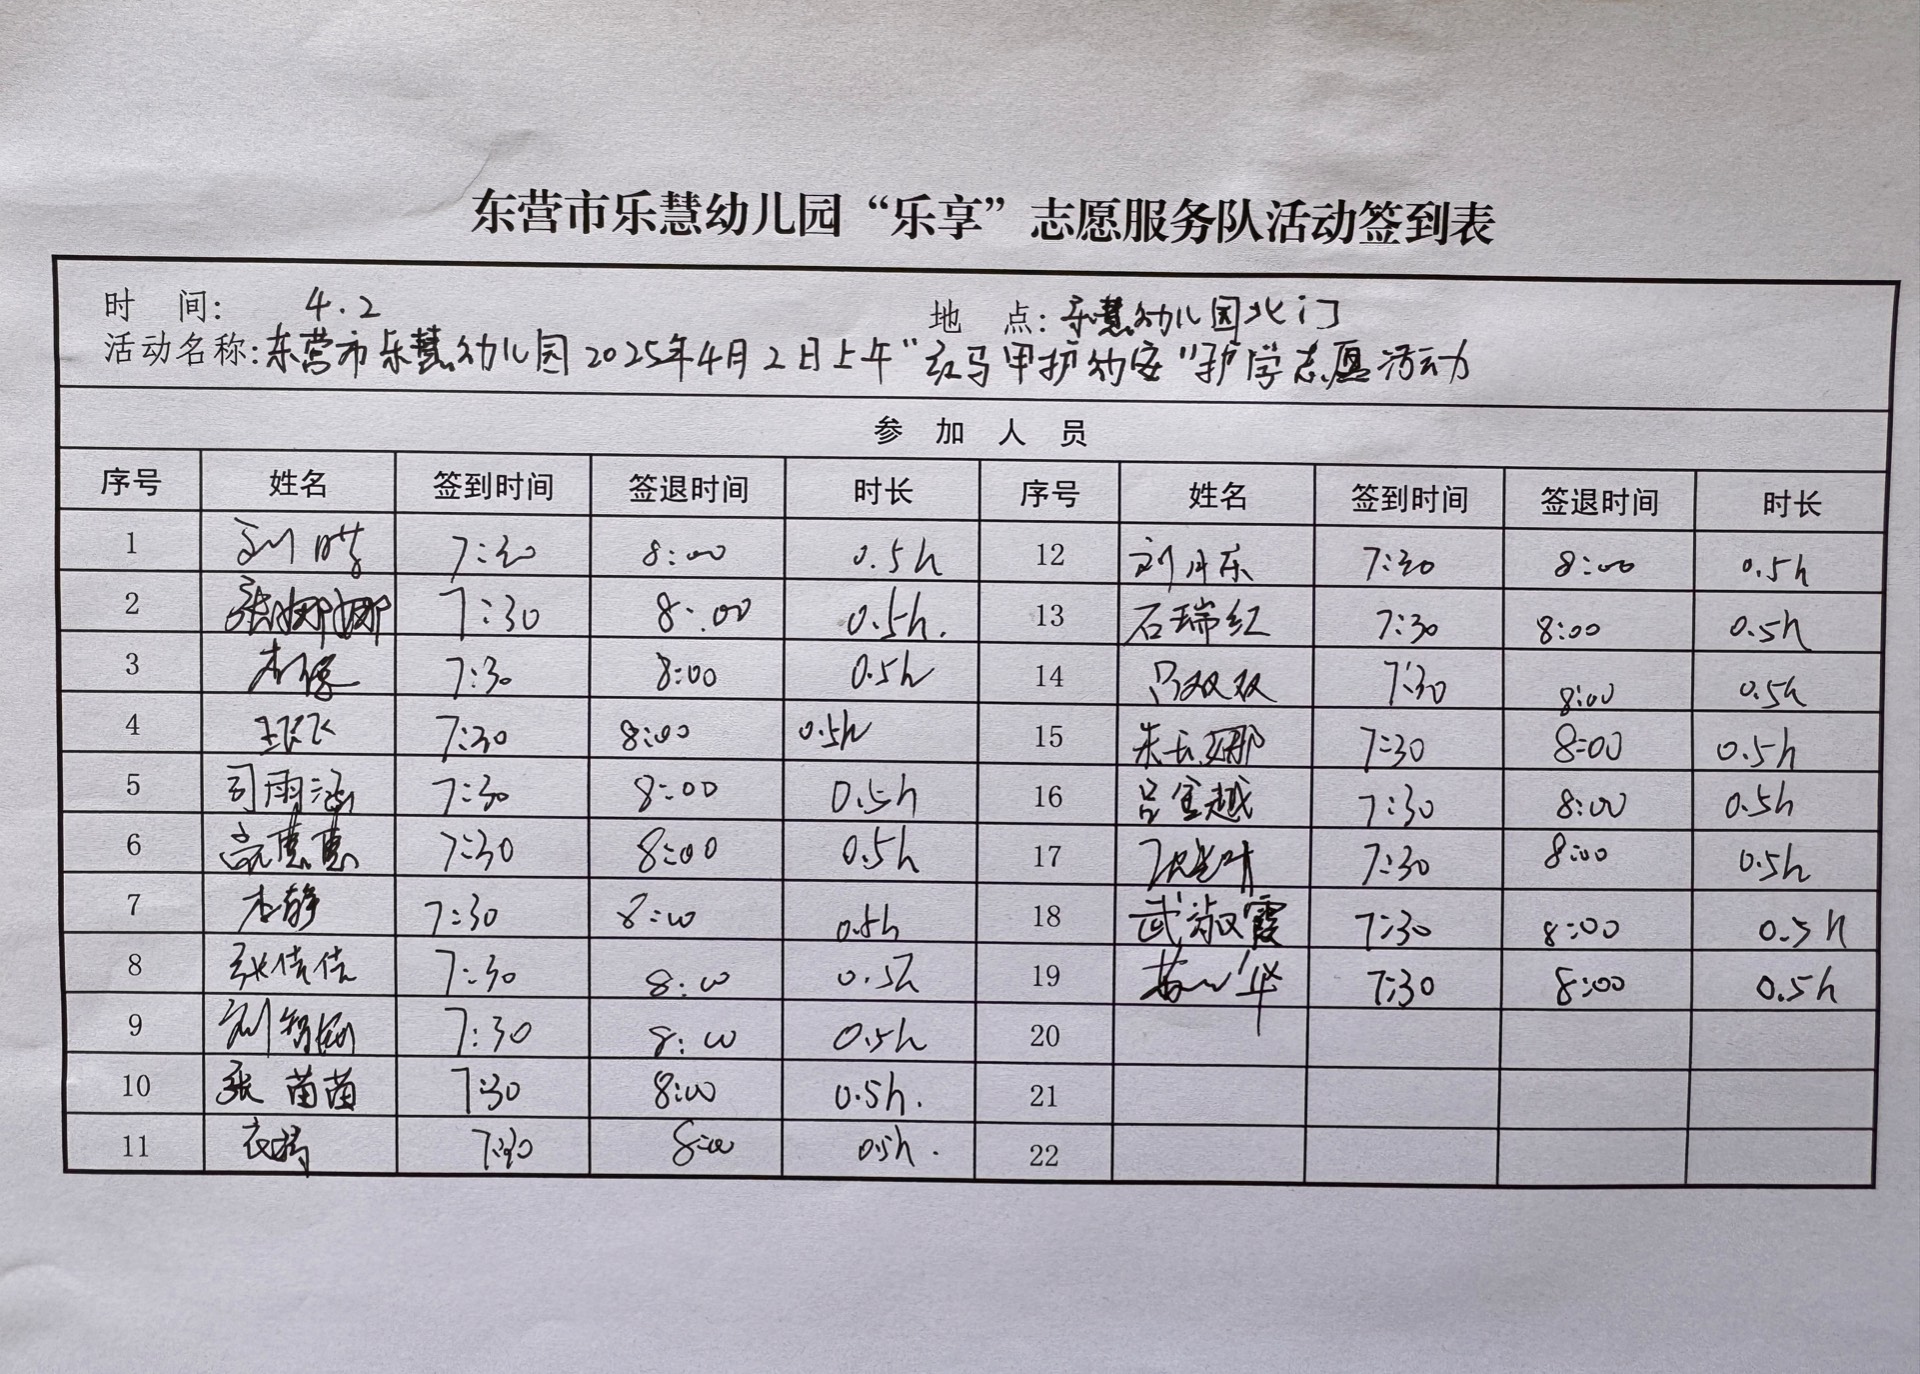 东营市乐慧幼儿园“乐享”志愿服务队活动签到表
时 间: 4.2 地 点: 乐慧幼儿园北门
活动名称: 东营市乐慧幼儿园2025年4月2日上午“红马甲护幼安”护学志愿活动
参 加 人 员
序号 姓名 签到时间 签退时间 时长 序号 姓名 签到时间 签退时间 时长
1 刘 7:30 8:00 0.5h 12 刘月东 7:30 8:00 0.5h
2 张娜娜 7:30 8:00 0.5h. 13 石瑞红 7:30 8:00 0.5h
3 7:30 8:00 0.5h 14 吕双双 7:30 8:00 0.5h
4 王飞飞 7:30 8:00 0.5h 15 朱长娜 7:30 8:00 0.5h
5 司雨涵 7:30 8:00 0.5h 16 吕金越 7:30 8:00 0.5h
6 高惠惠 7:30 8:00 0.5h 17 7:30 8:00 0.5h
7 李静 7:30 8:00 0.5h 18 武淑霞 7:30 8:00 0.5h
8 张倩倩 7:30 8:00 0.5h 19 华 7:30 8:00 0.5h
9 刘 7:30 8:00 0.5h 20
10 张苗苗 7:30 8:00 0.5h. 21
11 7:30 8:00 0.5h. 22